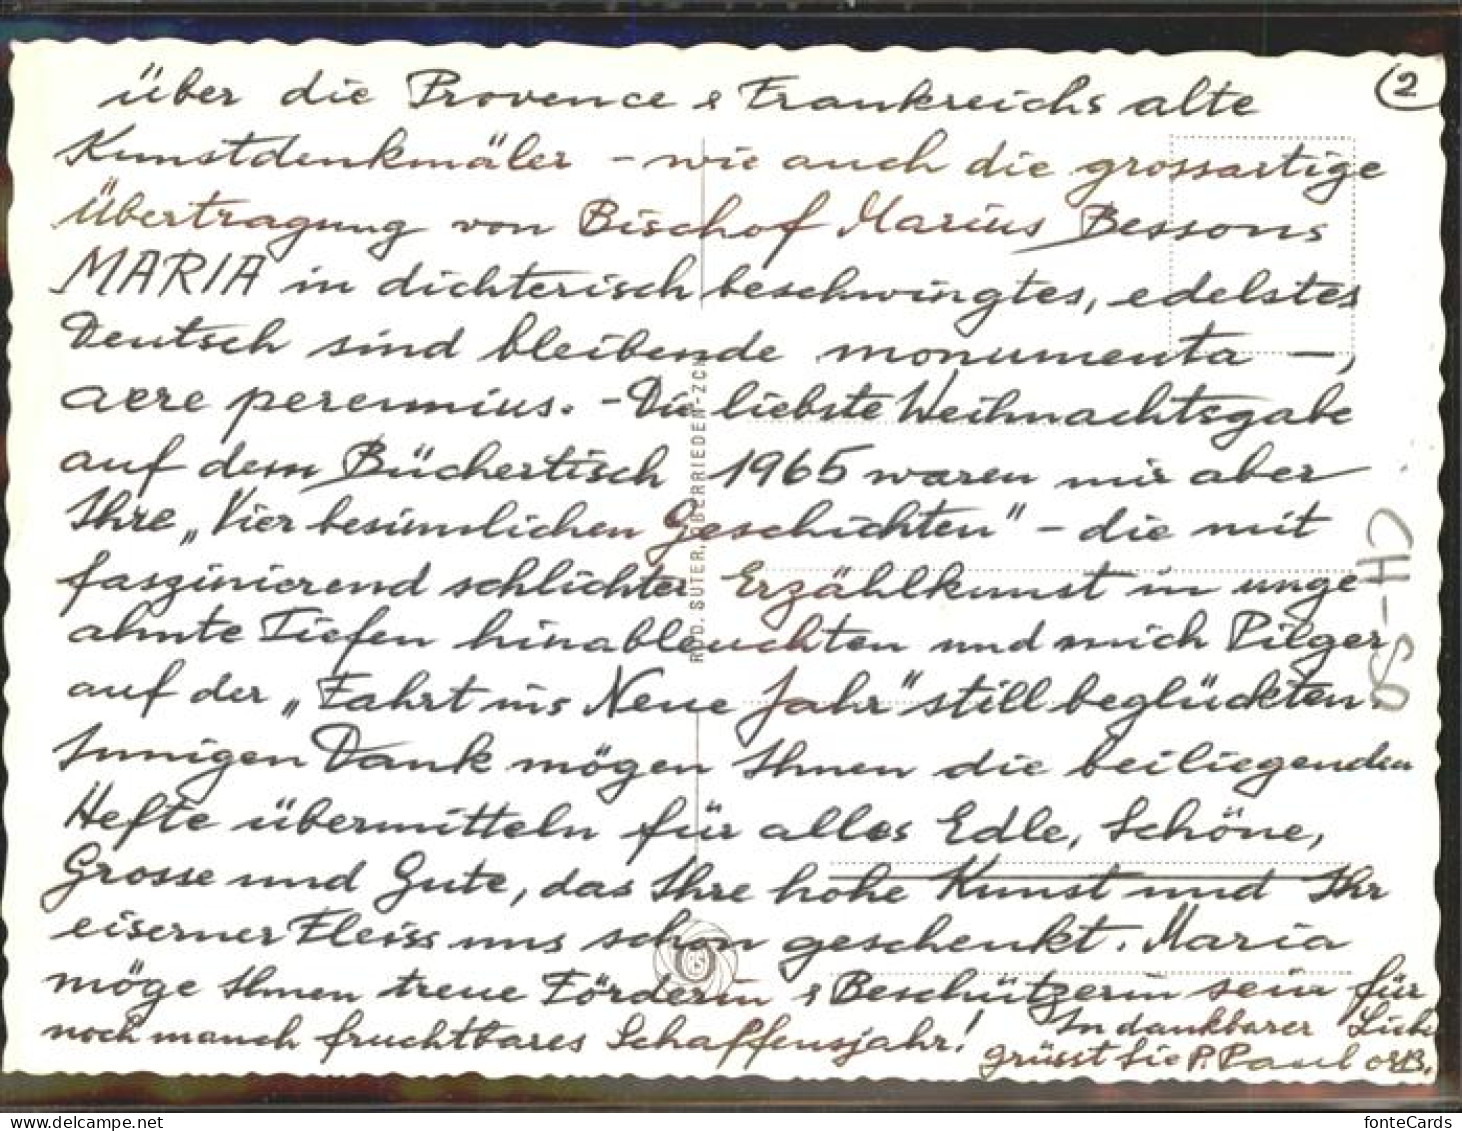 2
über die Provence & Frankreichs alte
Kunstdenkmäler – wie auch die grossartige
Übertragung von Bischof Marius Bessons
MARIA in dichterisch beschwingtes, edelstes
Deutsch sind bleibende monumenta –,
aere perennius. – Die liebste Weihnachtsgabe
auf dem Büchertisch 1965 waren mir aber
Ihre „Vier besinnlichen Geschichten" – die mit
faszinierend schlichter Erzählkunst in unge
ahnte Tiefen hinableuchten und mich Pilger
auf der „Fahrt ins Neue Jahr" still beglückten.
Innigen Dank mögen Ihnen die beiliegenden
Hefte übermitteln für alles Edle, Schöne,
Grosse und Gute, das Ihre hohe Kunst und Ihr
eiserner Fleiss uns schon geschenkt. Maria
möge Ihnen treue Förderin & Beschützerin sein für
noch manch fruchtbares Schaffensjahr! In dankbarer Liebe
grüsst Sie P. Paul OSB.
SUTER, OBERRIEDEN-ZCH
CH-
fonteCards